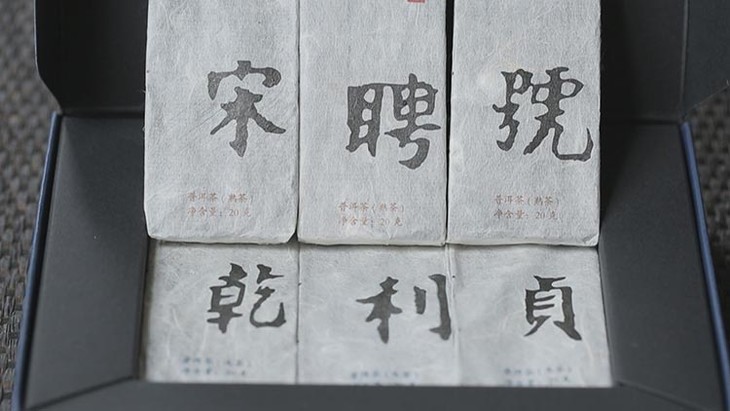 宋
聘
號
普洱茶（熟茶）
净含量：20克
普洱茶（熟茶）
净含量：20克
普洱茶（熟茶）
净含量：20克
乾
利
貞